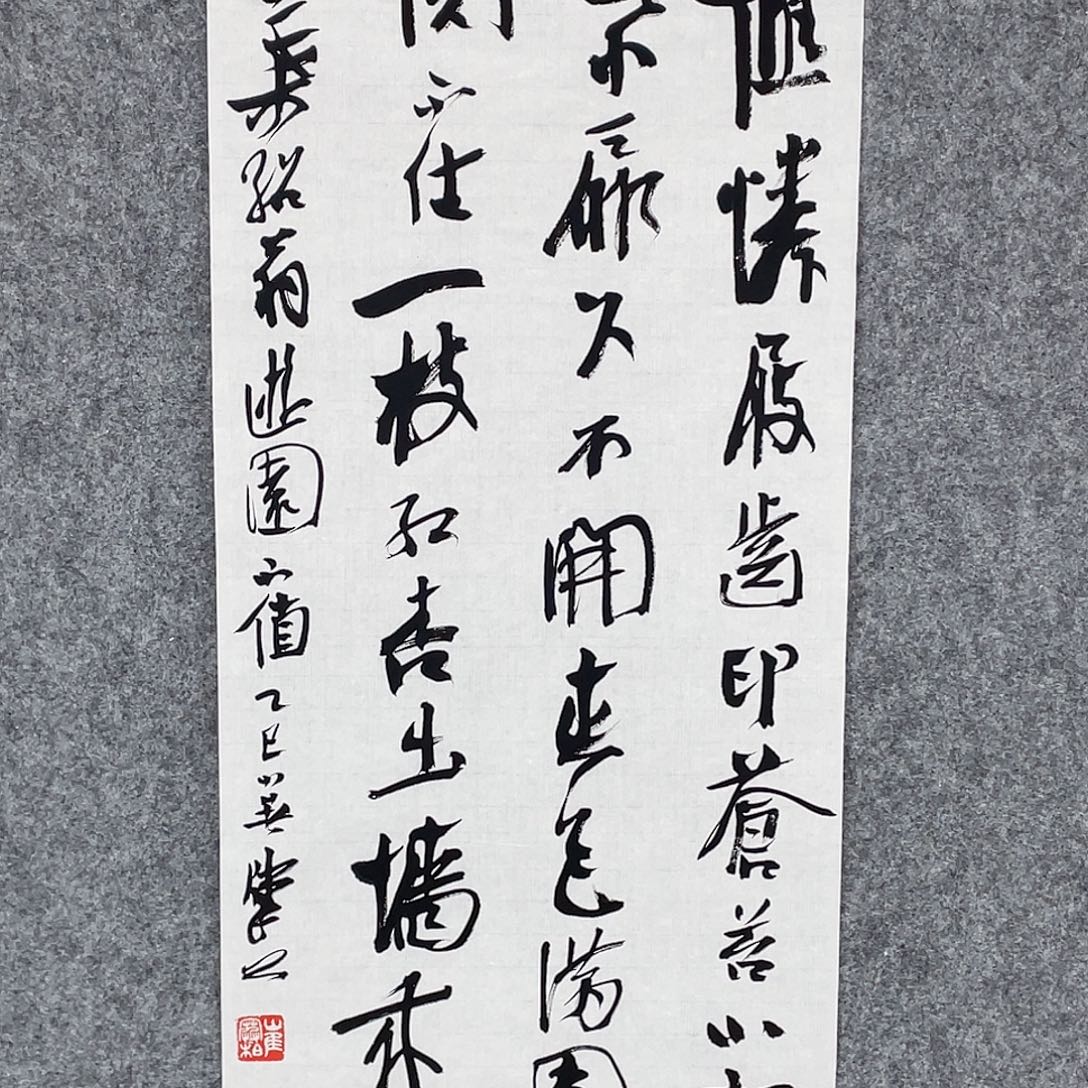 應憐屐齒印蒼苔小扣
柴扉久不開春色滿園
關不住一枝紅杏出墻来
葉紹翁遊園不值乙巳
崔